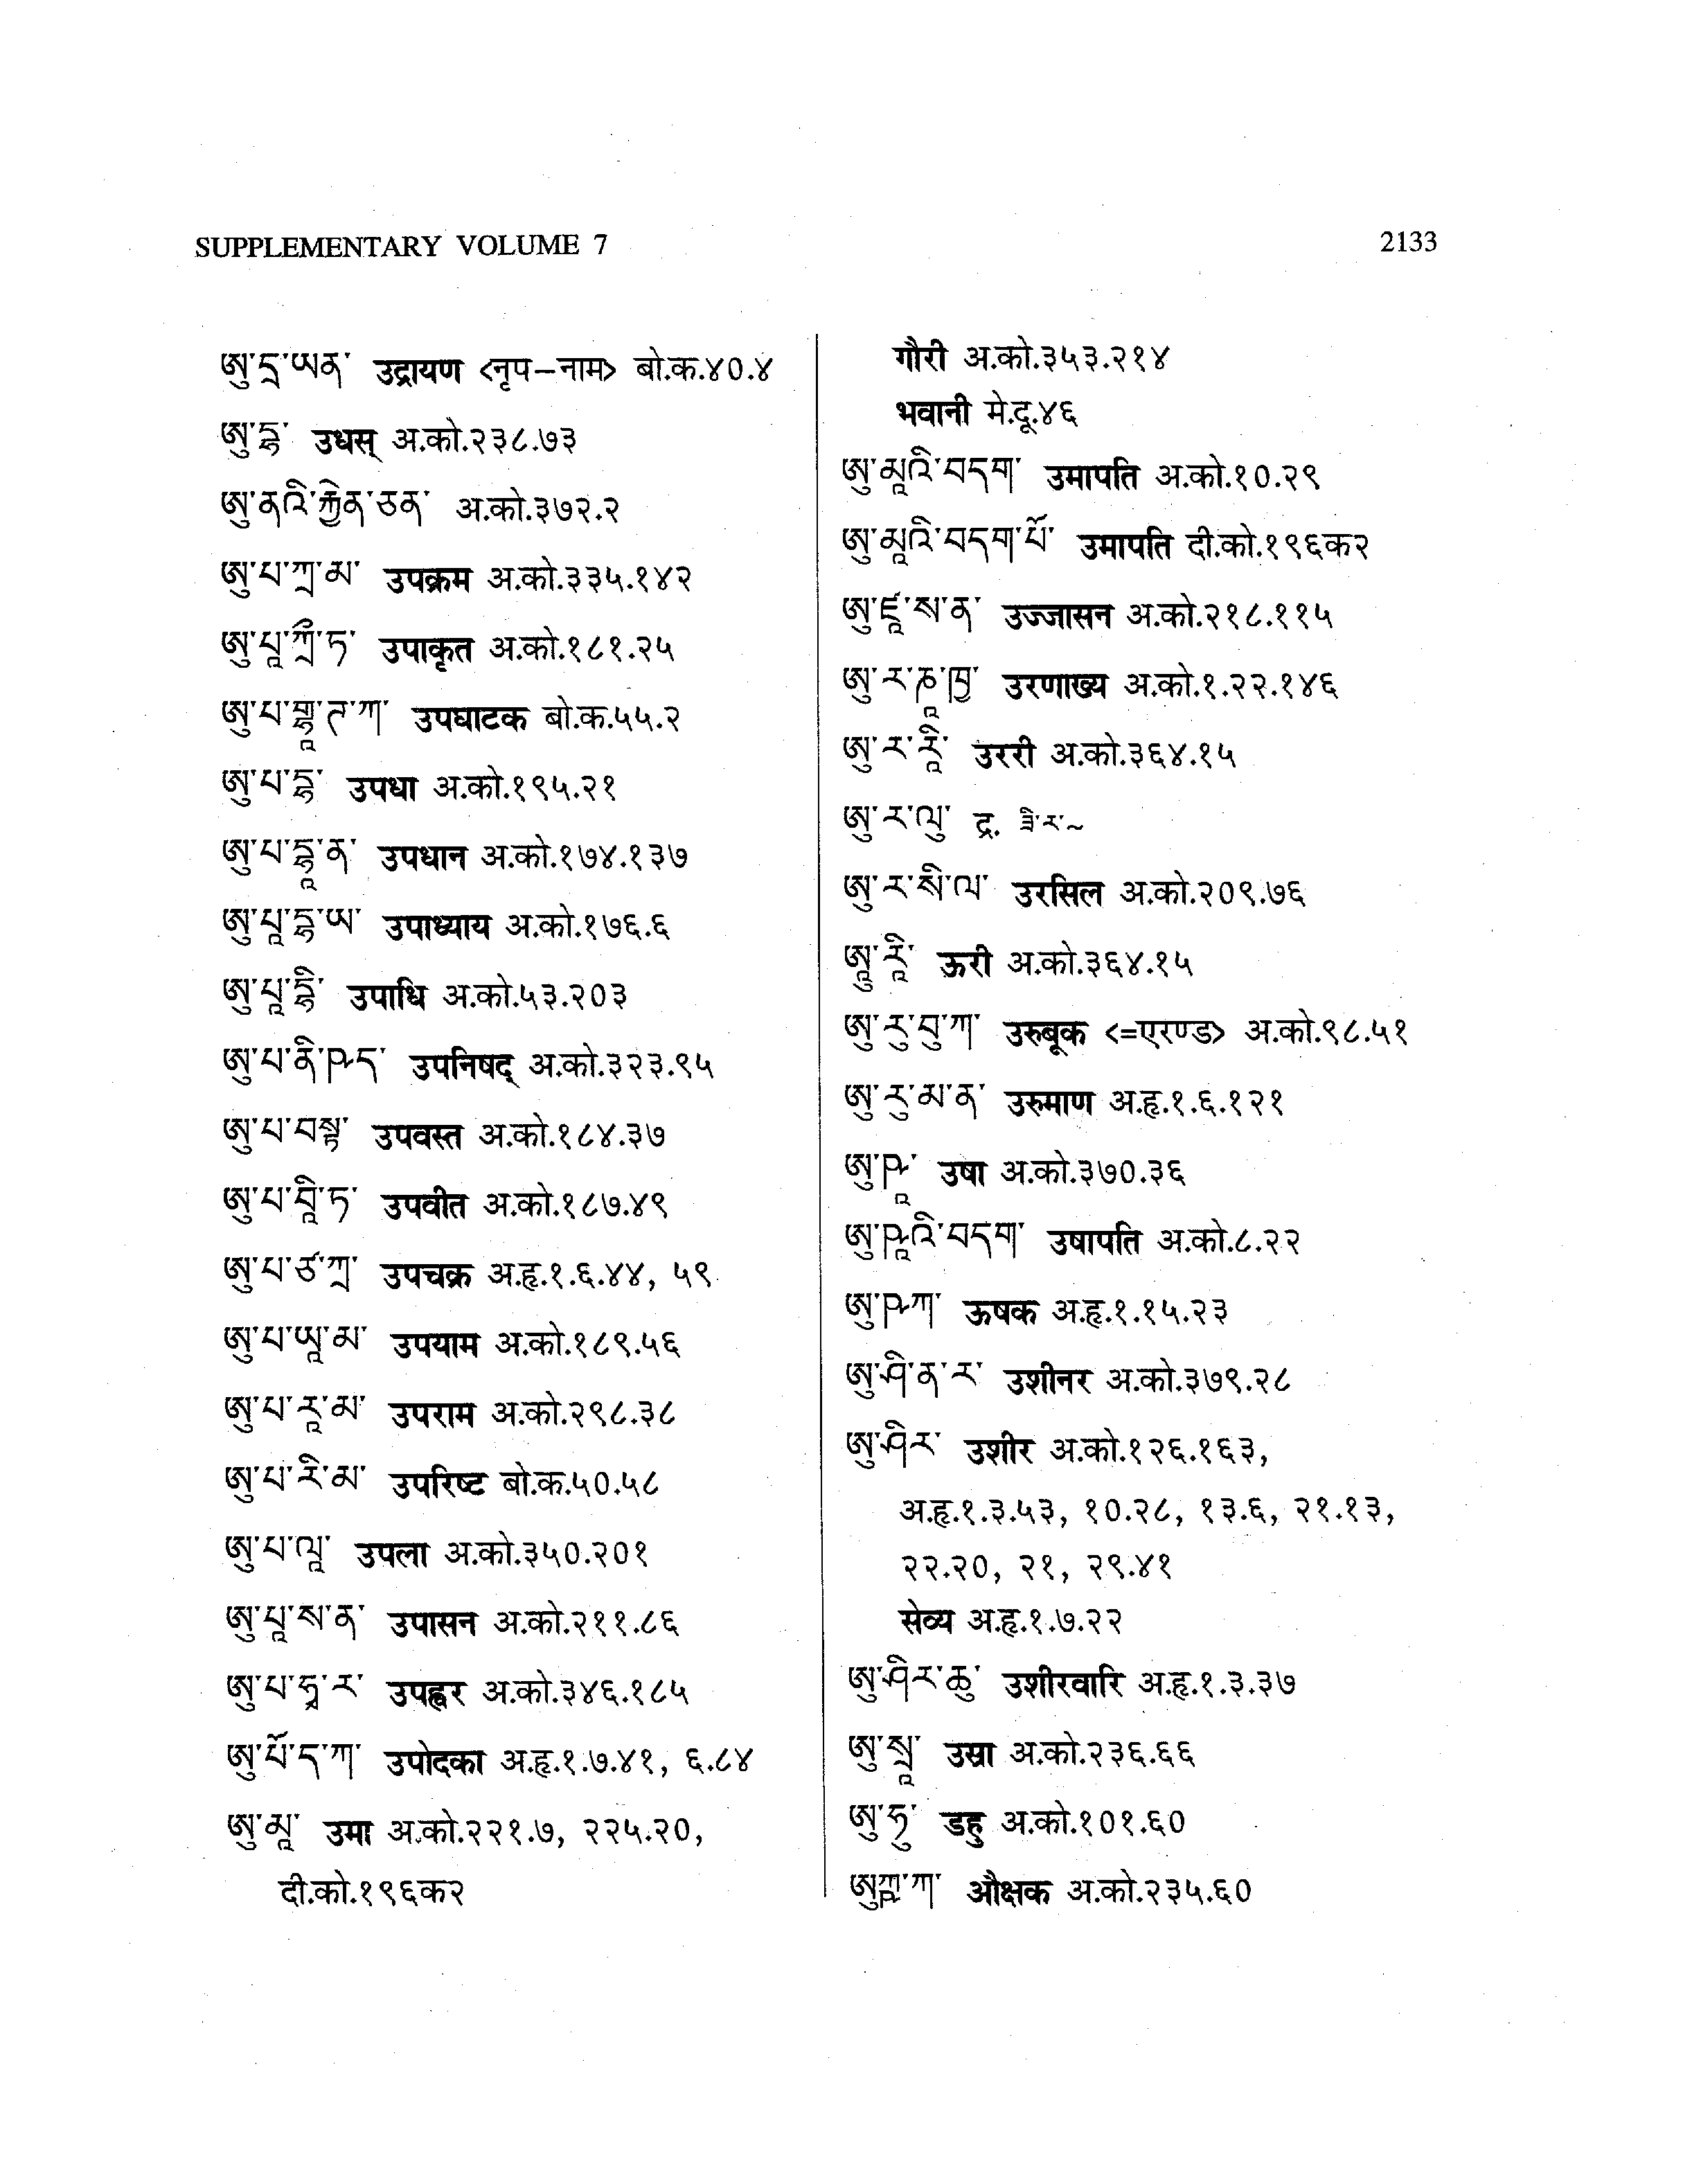 SUPPLEMENTARY VOLUME 7
2133
ཨུ་དྲ་ཡན་ उद्रायण <नृप–नाम> बो.क.४०.४
ཨུ་དྷ་ उधस् अ.को.२३८.७३
ཨུ་ནའི་རྐྱེན་ཅན་ अ.को.३७२.२
ཨུ་པ་ཀྲ་མ་ उपक्रम अ.को.३३५.१४२
ཨུ་པཱ་ཀྲྀ་ཏ་ उपाकृत अ.को.१८१.२५
ཨུ་པ་གྷཱ་ཊ་ཀ་ उपघाटक बो.क.५५.२
ཨུ་པ་དྷ་ उपधा अ.को.१९५.२१
ཨུ་པ་དྷཱ་ན་ उपधान अ.को.१७४.१३७
ཨུ་པཱ་དྷ་ཡ་ उपाध्याय अ.को.१७६.६
ཨུ་པཱ་དྷི་ उपाधि अ.को.५३.२०३
ཨུ་པ་ནི་ཥད་ उपनिषद् अ.को.३२३.९५
ཨུ་པ་བསྟ་ उपवस्त अ.को.१८४.३७
ཨུ་པ་བཱི་ཏ་ उपवीत अ.को.१८७.४९
ཨུ་པ་ཙ་ཀྲ་ उपचक्र अ.हृ.१.६.४४, ५९
ཨུ་པ་ཡཱ་མ་ उपयाम अ.को.१८९.५६
ཨུ་པ་རཱ་མ་ उपराम अ.को.२९८.३८
ཨུ་པ་རི་མ་ उपरिष्ट बो.क.५०.५८
ཨུ་པ་ལཱ་ उपला अ.को.३५०.२०१
ཨུ་པཱ་ས་ན་ उपासन अ.को.२११.८६
ཨུ་པ་ཧྭ་ར་ उपह्वर अ.को.३४६.१८५
ཨུ་པོ་ད་ཀ་ उपोदका अ.हृ.१.७.४१, ६.८४
ཨུ་མཱ་ उमा अ.को.२२१.७, २२५.२०,
दी.को.१९६क२
गौरी अ.को.३५३.२१४
भवानी मे.दू.४६
ཨུ་མཱའི་བདག་ उमापति अ.को.१०.२९
ཨུ་མཱའི་བདག་པོ་ उमापति दी.को.१९६क२
ཨུ་ཛཱ་ས་ན་ उज्जासन अ.को.२१८.११५
ཨུ་ར་ཎཱ་ཁྱ་ उरणाख्य अ.को.१.२२.१४६
ཨུ་ར་རཱི་ उररी अ.को.३६४.१५
ཨུ་ར་ལུ་ द्र. ཟི་ར་~
ཨུ་ར་སི་ལ་ उरसिल अ.को.२०९.७६
ཨཱུ་རཱི་ ऊरी अ.को.३६४.१५
ཨུ་རུ་བུ་ཀ་ उरुबूक <=एरण्ड> अ.को.९८.५१
ཨུ་རུ་མ་ན་ उरुमाण अ.हृ.१.६.१२१
ཨུ་ཥཱ་ उषा अ.को.३७०.३६
ཨུ་ཥཱའི་བདག་ उषापति अ.को.८.२२
ཨུ་ཥ་ཀ་ ऊषक अ.हृ.१.१५.२३
ཨུ་ཤི་ན་ར་ उशीनर अ.को.३७९.२८
ཨུ་ཤིར་ उशीर अ.को.१२६.१६३,
अ.हृ.१.३.५३, १०.२८, १३.६, २१.१३,
२२.२०, २१, २९.४१
सेव्य अ.हृ.१.७.२२
ཨུ་ཤིར་ཆུ་ उशीरवारि अ.हृ.१.३.३७
ཨུ་སྲཱ་ उस्रा अ.को.२३६.६६
ཨུ་ཧུ་ डहु अ.को.१०१.६०
ཨུཀྵ་ཀ་ औक्षक अ.को.२३५.६०